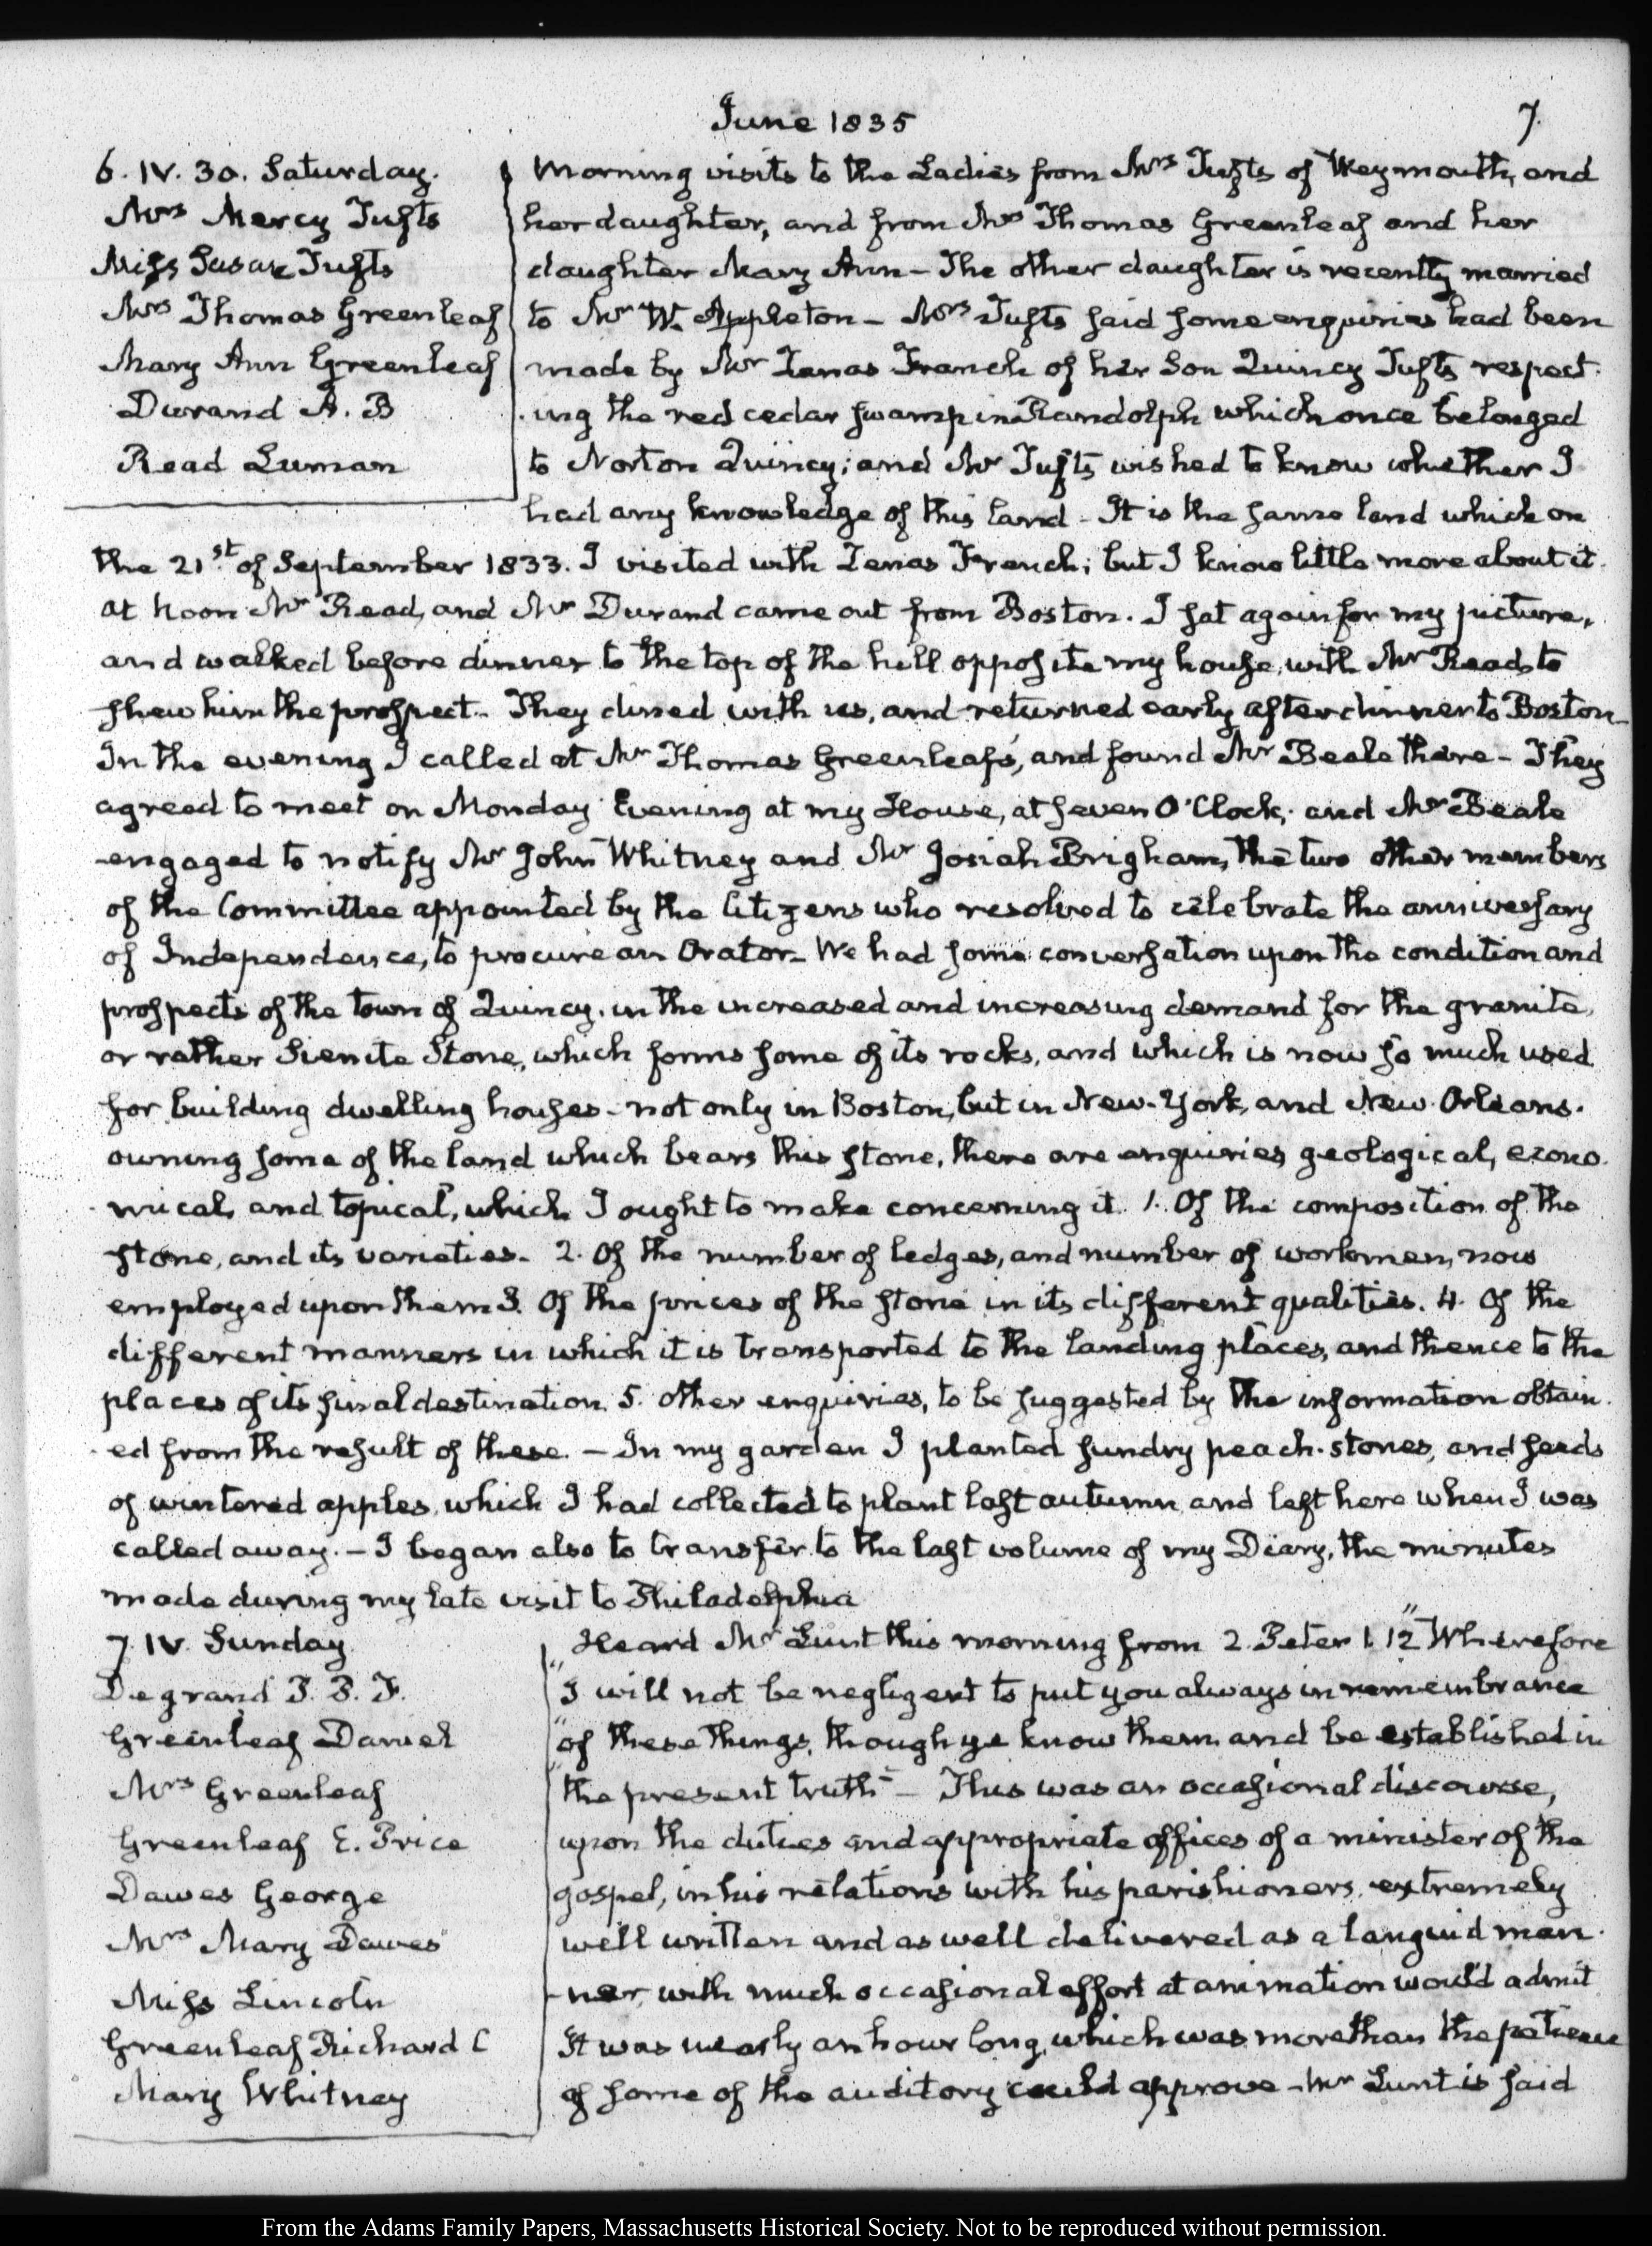 June 1835
7.
6. IV. 30. Saturday.
Mrs Mercy Tufts
Miss Susan Tufts
Mrs Thomas Greenleaf
Mary Ann Greenleaf
Durand A. B
Read Luman
Morning visits to the Ladies from Mrs Tufts of Weymouth, and
her daughter, and from Mrs Thomas Greenleaf and her
daughter Mary Ann – The other daughter is recently married
to Mr W. Appleton – Mrs Tufts said some enquiries had been
made by Mr Zenas French of her Son Quincy Tufts respect-
-ing the red cedar swamp in Randolph which once belonged
to Norton Quincy; and Mr Tufts wished to know whether I
had any knowledge of this land – It is the same land which on
the 21st of September 1833. I visited with Zenas French; but I know little more about it.
At Noon Mr Read, and Mr Durand came out from Boston. I sat again for my picture,
and walked before dinner to the top of the hill opposite my house, with Mr Read to
shew him the prospect. They dined with us, and returned early after dinner to Boston –
In the evening I called at Mr Thomas Greenleaf's, and found Mr Beale there – They
agreed to meet on Monday Evening at my House, at seven O'Clock; and Mr Beale
engaged to notify Mr John Whitney and Mr Josiah Brigham, the two other members
of the Committee appointed by the Citizens who resolved to celebrate the anniversary
of Independence, to procure an Orator – We had some conversation upon the condition and
prospects of the town of Quincy. in the increased and increasing demand for the granite,
or rather Sienite Stone, which forms some of its rocks, and which is now so much used
for building dwelling houses – not only in Boston, but in New-York, and New Orleans.
owning some of the land which bears this stone, there are enquiries geological, econo-
-mical, and topical, which I ought to make concerning it. 1. Of the composition of the
stone, and its varieties – 2. Of the number of ledges, and number of workmen, now
employed upon them 3. Of the prices of the stone in its different qualities. 4. Of the
different manners in which it is transported to the landing places, and thence to the
places of its final destination. 5. Other enquiries, to be suggested by the information obtain-
-ed from the result of these. – In my garden I planted sundry peach-stones, and seeds
of wintered apples, which I had collected to plant last autumn, and left here when I was
called away. – I began also to transfer to the last volume of my Diary, the minutes
made during my late visit to Philadelphia
7. IV. Sunday
Degrand P. P. F.
Greenleaf Daniel
Mrs Greenleaf
Greenleaf E. Price
Dawes George
Mrs Mary Dawes
Miss Lincoln
Greenleaf Richard C
Mary Whitney
Heard Mr Lunt this morning from 2. Peter 1. 12 "Wherefore
"I will not be negligent to put you always in remembrance
"of these things, though ye know them, and be established in
"the present truth" – This was an occasional discourse,
upon the duties and appropriate offices of a minister of the
gospel, in his relations with his parishioners. extremely
well written and as well delivered as a languid man-
-ner, with much occasional effort at animation would admit
It was nearly an hour long, which was more than the patience
of some of the auditory could approve – Mr Lunt is said
From the Adams Family Papers, Massachusetts Historical Society. Not to be reproduced without permission.